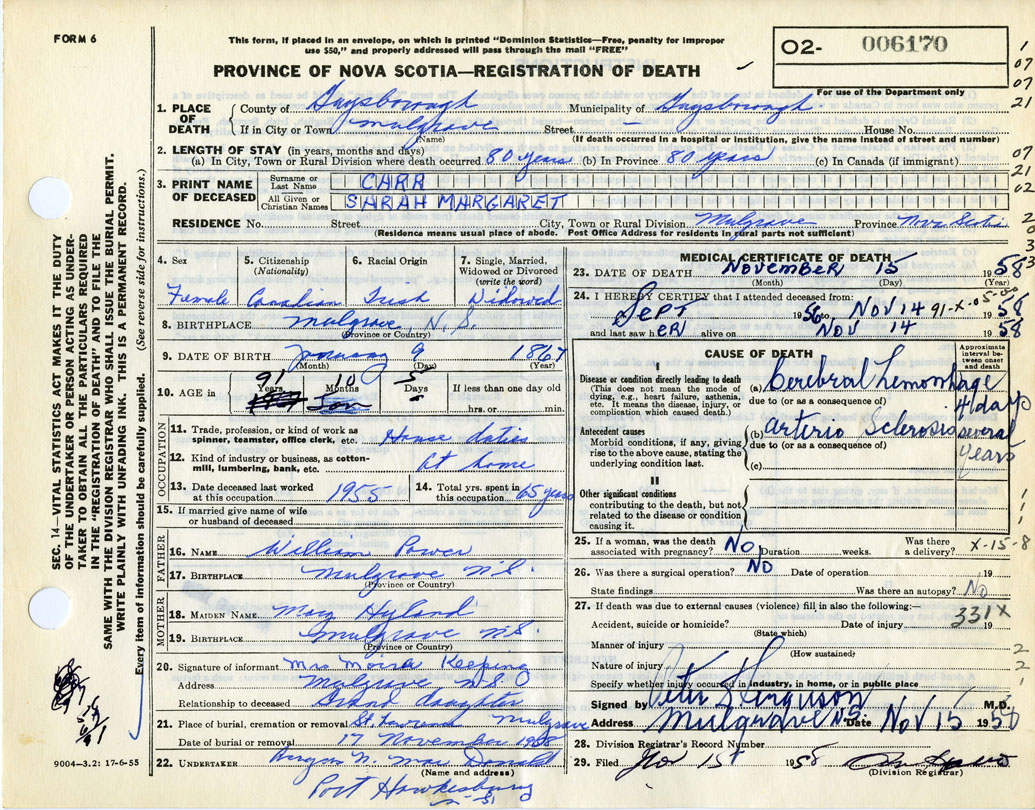 FORM 6
This form, if placed in an envelope, on which is printed "Dominion Statistics—Free, penalty for improper
use $50," and properly addressed will pass through the mail "FREE"
O2- 006170
For use of the Department only
PROVINCE OF NOVA SCOTIA—REGISTRATION OF DEATH
1. PLACE OF DEATH
County of Guysborough Municipality of Guysborough
If in City or Town Mulgrave Street — House No.
(Name) (If death occurred in a hospital or institution, give the name instead of street and number)
2. LENGTH OF STAY (in years, months and days)
(a) In City, Town or Rural Division where death occurred 80 years (b) In Province 80 years (c) In Canada (if immigrant)
3. PRINT NAME OF DECEASED
Surname or Last Name CARR
All Given or Christian Names SARAH MARGARET
RESIDENCE No. Street City, Town or Rural Division Mulgrave Province Nova Scotia
(Residence means usual place of abode. Post Office Address for residents in rural parts not sufficient)
4. Sex Female
5. Citizenship (Nationality) Canadian
6. Racial Origin Irish
7. Single, Married, Widowed or Divorced (write the word) Widowed
8. BIRTHPLACE Mulgrave, N.S.
(Province or Country)
9. DATE OF BIRTH January 9 1867
(Month) (Day) (Year)
10. AGE in 91 Years 10 Months 5 Days
If less than one day old
hrs. or min.
OCCUPATION
11. Trade, profession or kind of work as spinner, teamster, office clerk, etc. House duties
12. Kind of industry or business, as cotton-mill, lumbering, bank, etc. At home
13. Date deceased last worked at this occupation 1955
14. Total yrs. spent in this occupation 65 years
15. If married give name of wife or husband of deceased
FATHER
16. NAME William Power
17. BIRTHPLACE Mulgrave N.S.
(Province or Country)
MOTHER
18. MAIDEN NAME Mary Hyland
19. BIRTHPLACE Mulgrave N.S.
(Province or Country)
20. Signature of informant Mrs Moira Keeping
Address Mulgrave N.S.
Relationship to deceased Grand daughter
21. Place of burial, cremation or removal St. Mulgrave
Date of burial or removal 17 November 1958
22. UNDERTAKER N. Mac Donald
(Name and address)
Port Hawkesbury
N.S.
MEDICAL CERTIFICATE OF DEATH
23. DATE OF DEATH NOVEMBER 15 1958
(Month) (Day) (Year)
24. I HEREBY CERTIFY that I attended deceased from:
SEPT 1956 to NOV 14 1958
91-X-05-00
and last saw hER alive on NOV 14 1958
CAUSE OF DEATH
Approximate interval between onset and death
I
Disease or condition directly leading to death
(This does not mean the mode of dying, e.g., heart failure, asthenia, etc. It means the disease, injury, or complication which caused death.)
(a) Cerebral hemorrhage 4 days
due to (or as a consequence of)
Antecedent causes
Morbid conditions, if any, giving rise to the above cause, stating the underlying condition last.
(b) Arterio Sclerosis several years
due to (or as a consequence of)
(c)
II
Other significant conditions
contributing to the death, but not related to the disease or condition causing it.
25. If a woman, was the death associated with pregnancy? NO Duration weeks. Was there a delivery? X-15-8
26. Was there a surgical operation? NO Date of operation 19
State findings Was there an autopsy? No
27. If death was due to external causes (violence) fill in also the following:—
331X
Accident, suicide or homicide? Date of injury 19
(State which)
Manner of injury
(How sustained)
Nature of injury
Specify whether injury occurred in industry, in home, or in public place
Signed by Peter Ferguson M.D.
Address Mulgrave NS Date Nov 15 1958
28. Division Registrar's Record Number
29. Filed Nov 15th 1958
(Division Registrar)
SEC. 14—VITAL STATISTICS ACT MAKES IT THE DUTY
OF THE UNDERTAKER OR PERSON ACTING AS UNDER-
TAKER TO OBTAIN ALL THE PARTICULARS REQUIRED
IN THE "REGISTRATION OF DEATH" AND TO FILE THE
SAME WITH THE DIVISION REGISTRAR WHO SHALL ISSUE THE BURIAL PERMIT.
WRITE PLAINLY WITH UNFADING INK. THIS IS A PERMANENT RECORD.
Every item of information should be carefully supplied. (See reverse side for instructions.)
9004-3.2: 17-6-55
1
07
07
21
07
21
02
2
0
3
3
1
1
1
1
2
2
1